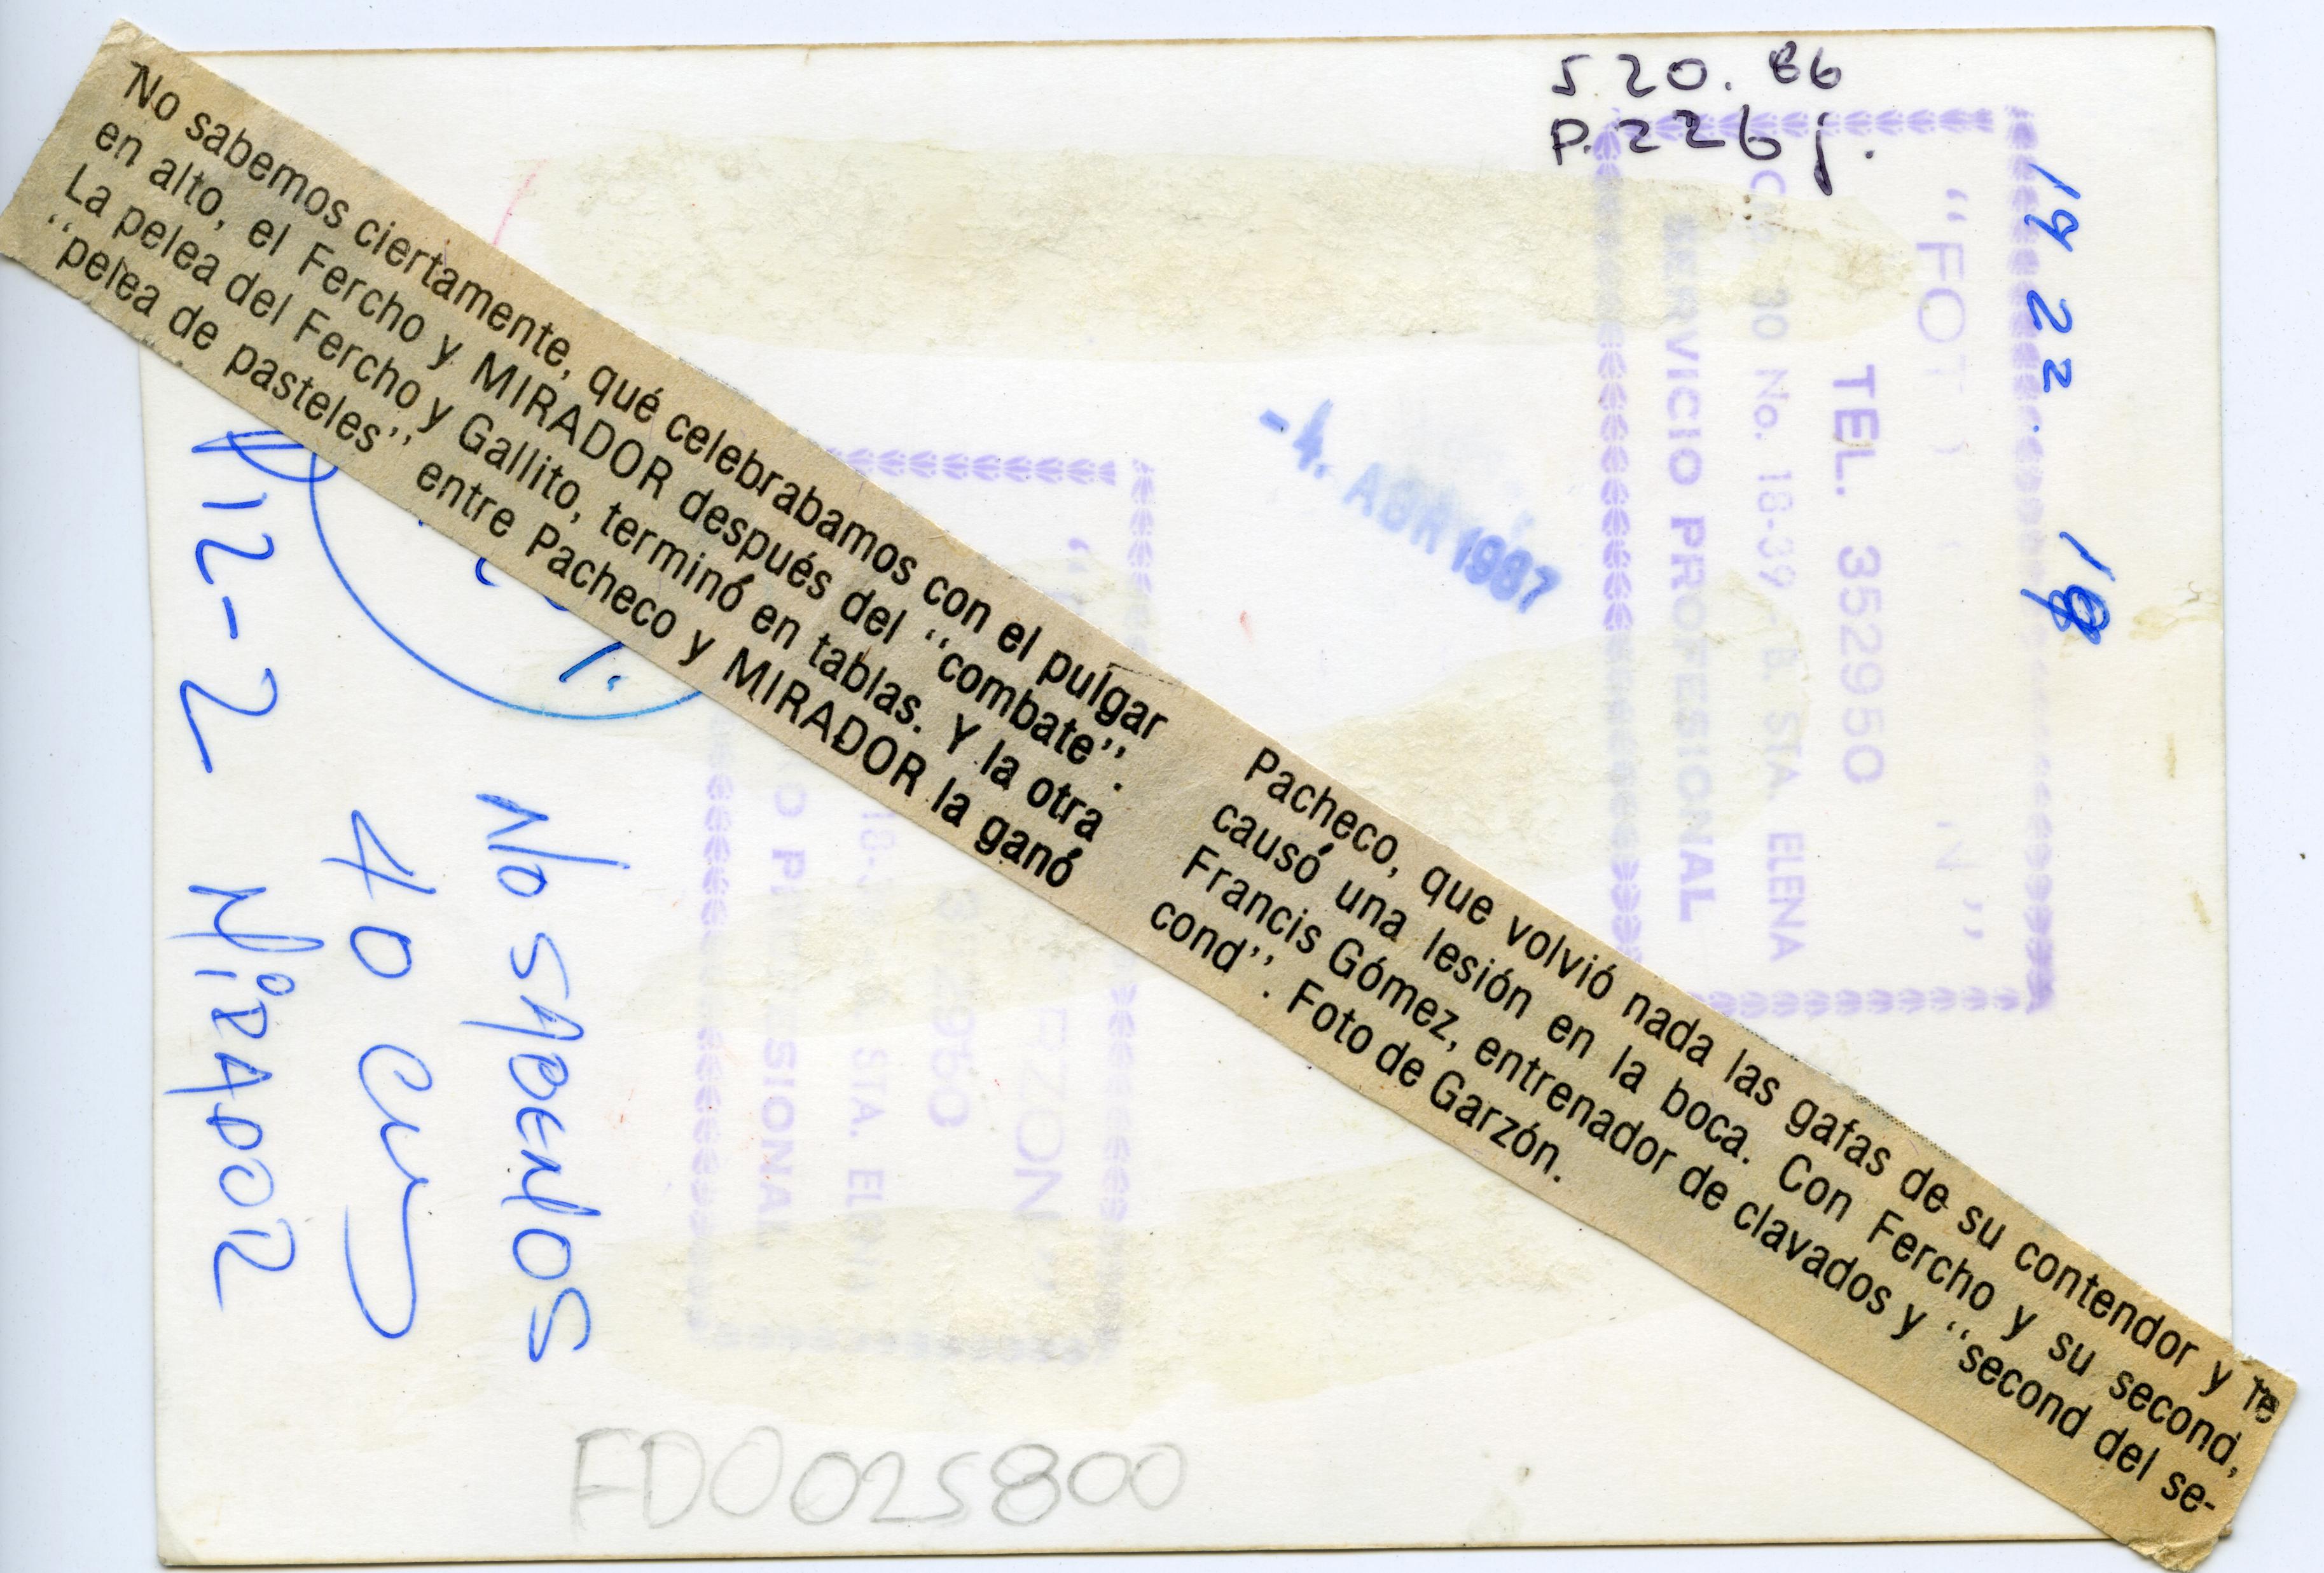 No sabemos ciertamente, qué celebrabamos con el pulgar
en alto, el Fercho y MIRADOR después del “combate”.
La pelea del Fercho y Gallito, terminó en tablas. Y la otra
“pelea de pasteles” entre Pacheco y MIRADOR la ganó
Pacheco, que volvió nada las gafas de su contendor y le
causó una lesión en la boca. Con Fercho y su second,
Francis Gómez, entrenador de clavados y “second del se-
cond”. Foto de Garzón.
5 20. 86
P. 226 j.
19 22 18
-4. ABR 1987
"FOT N"
TEL. 352950
30 No. 18-39 STA. ELENA
SERVICIO PROFESIONAL
ZON"
2950
18- STA. EL
SIONAL
No SABEMOS
40
12-2 MIRADOR
FD0025800